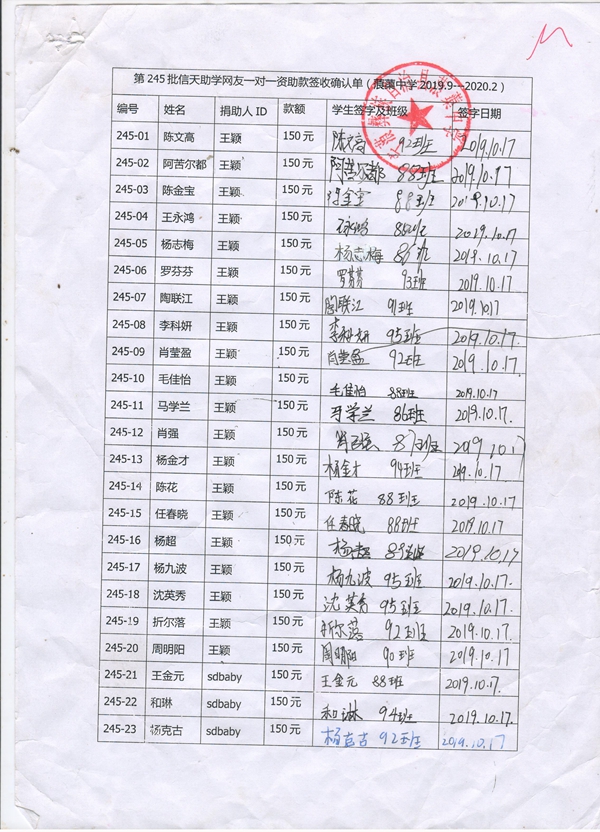 第 245 批信天助学网友一对一资助款签收确认单（蒗蕖中学 2019.9---2020.2）
编号 姓名 捐助人 ID 款额 学生签字及班级 签字日期
245-01 陈文高 王颖 150 元 陈文高 92班 2019.10.17
245-02 阿苦尔都 王颖 150 元 阿苦尔都 88班 2019.10.17
245-03 陈金宝 王颖 150 元 陈金宝 88班 2019.10.17
245-04 王永鸿 王颖 150 元 2019.10.17
245-05 杨志梅 王颖 150 元 杨志梅 86班 2019.10.17
245-06 罗芬芬 王颖 150 元 罗芬芬 93班 2019.10.17
245-07 陶联江 王颖 150 元 陶联江 91班 2019.10.17
245-08 李科妍 王颖 150 元 李科妍 95班 2019.10.17.
245-09 肖莹盈 王颖 150 元 肖莹盈 92班 2019.10.17.
245-10 毛佳怡 王颖 150 元 毛佳怡 88班 2019.10.17
245-11 马学兰 王颖 150 元 马学兰 86班 2019.10.17.
245-12 肖强 王颖 150 元 肖强 87班 2019.10.17
245-13 杨金才 王颖 150 元 杨金才 94班 2019.10.17.
245-14 陈花 王颖 150 元 陈花 88班 2019.10.17
245-15 任春晓 王颖 150 元 任春晓 88班 2019.10.17
245-16 杨超 王颖 150 元 杨超 89班 2019.10.17
245-17 杨九波 王颖 150 元 杨九波 95班 2019.10.17.
245-18 沈英秀 王颖 150 元 沈英秀 95班 2019.10.17.
245-19 折尔落 王颖 150 元 折尔落 92班 2019.10.17.
245-20 周明阳 王颖 150 元 周明阳 90班 2019.10.17
245-21 王金元 sdbaby 150 元 王金元 88班 2019.10.17.
245-22 和琳 sdbaby 150 元 和琳 94班 2019.10.17.
245-23 杨克古 sdbaby 150 元 杨克古 92班 2019.10.17